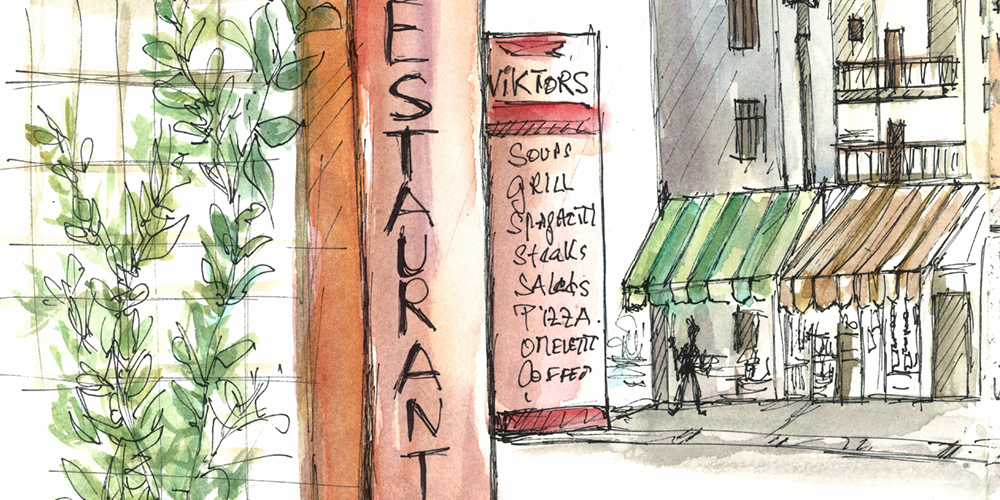 ESTAURANT
VIKTORS
SOUPS
GRILL
SPAgAZITTI
Steaks
SALADS
PIZZA.
OMELETT
COFFEE